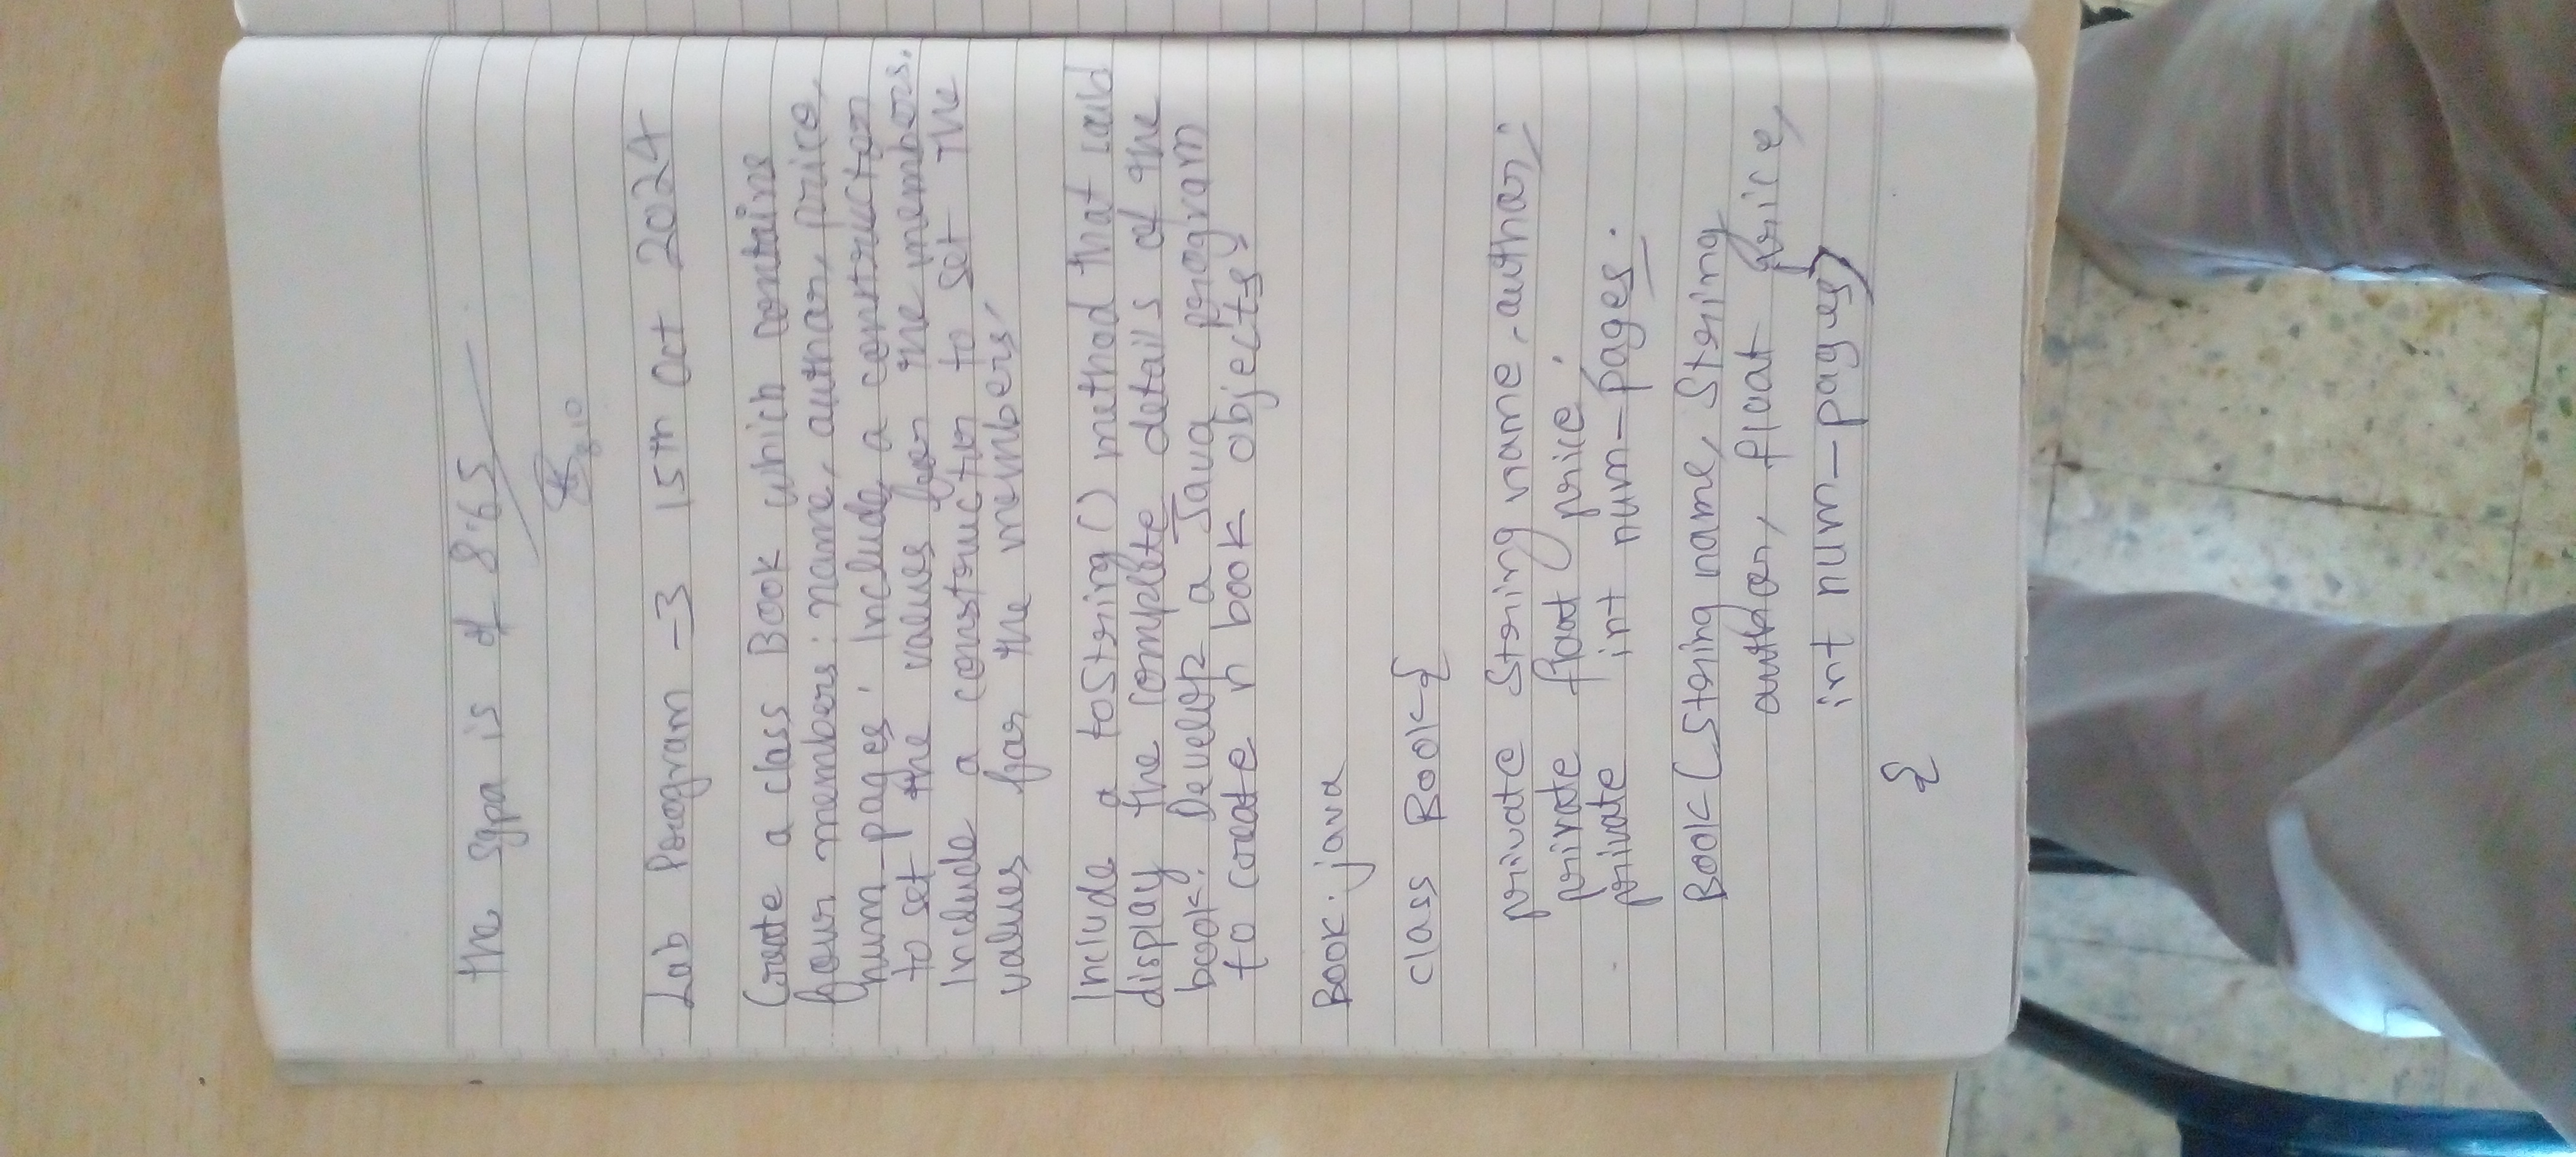 the sgpa is of 8.65
Lab Program -3 15th Oct 2024
Create a class Book which contains
four members: name, author, price,
num-pages. Include a constructor
to set the values for the members.
Include a constructor to set the
values for the members.
Include a toString() method that could
display the complete details of the
book. Develop a Java program
to create n book objects
Book.java
class Book {
private String name, author;
private float price;
private int num-pages.
Book (String name, String
author, float price,
int num-pages)
{